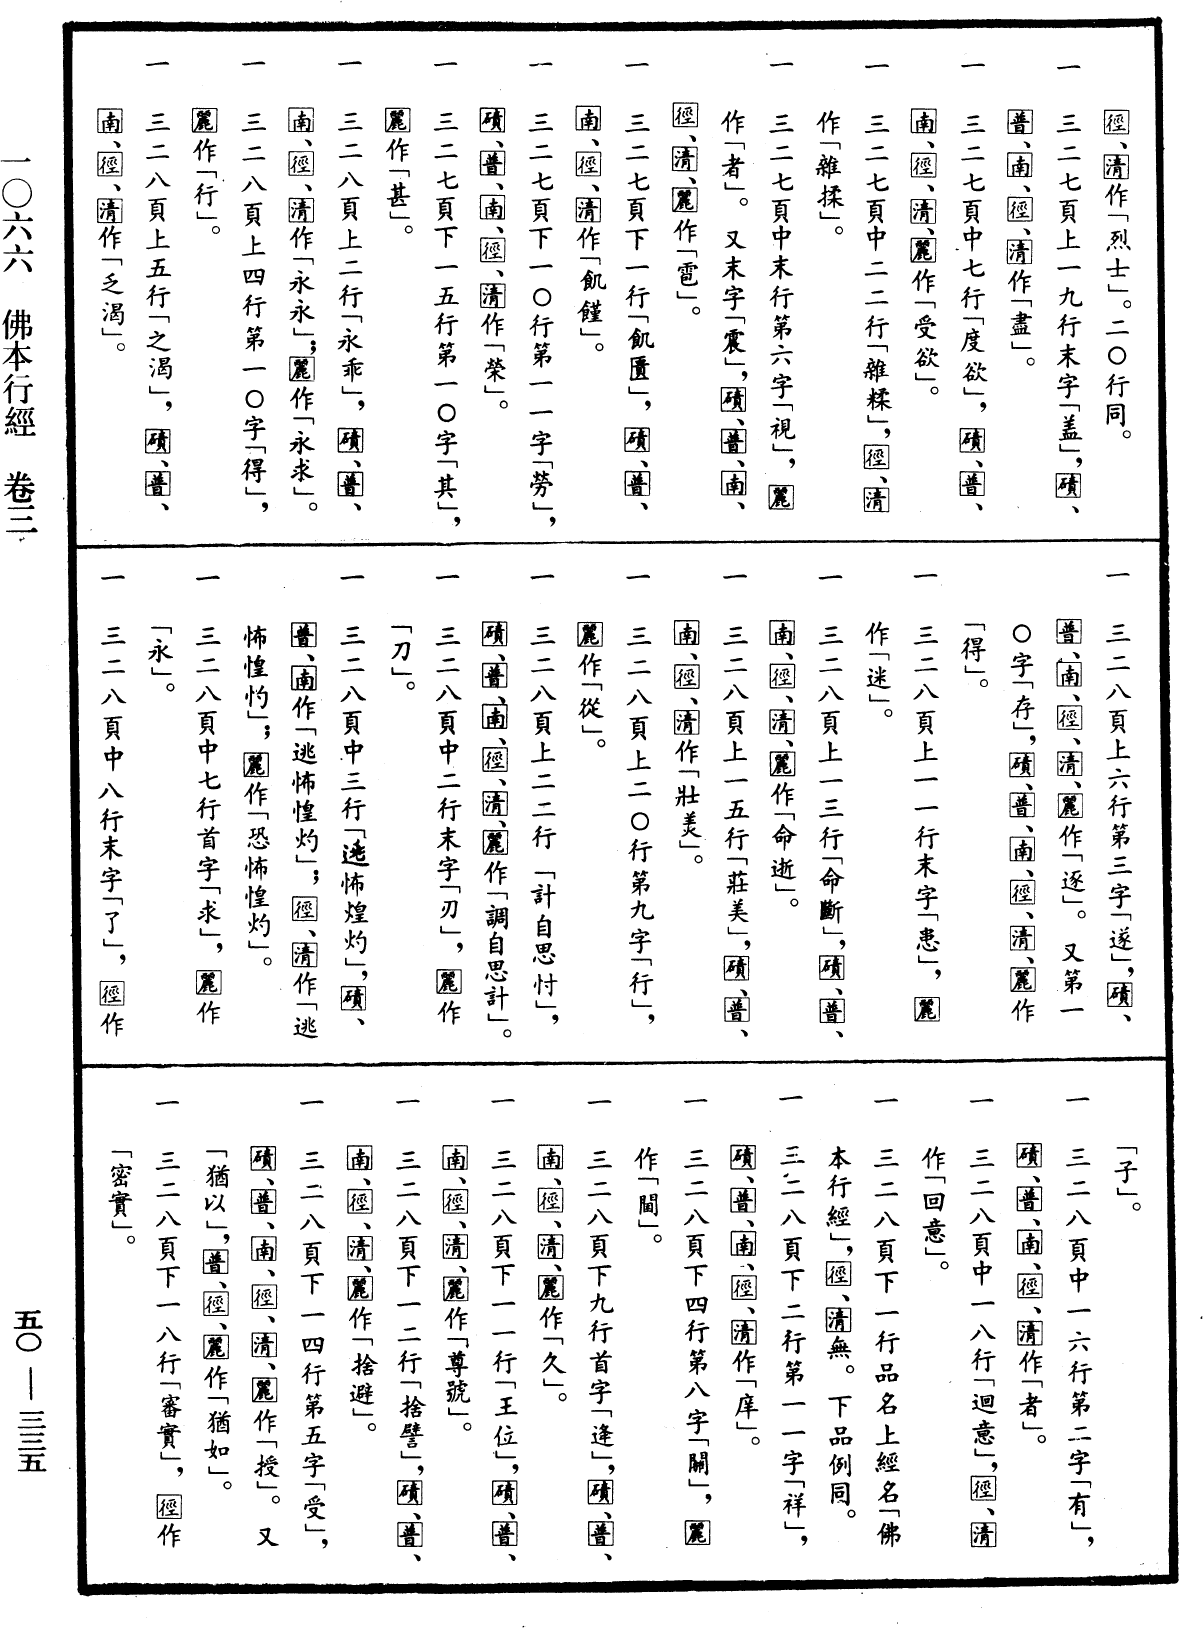 徑、清作「烈士」。二〇行同。
一 三二七頁上一九行末字「盖」，磧、
普、南、徑、清作「盡」。
一 三二七頁中七行「度欲」，磧、普、
南、徑、清、麗作「受欲」。
一 三二七頁中二二行「雜糅」，徑、清
作「雜揉」。
一 三二七頁中末行第六字「視」，麗
作「者」。又末字「震」，磧、普、南、
徑、清、麗作「雹」。
一 三二七頁下一行「飢匱」，磧、普、
南、徑、清作「飢饉」。
一 三二七頁下一〇行第一一字「勞」，
磧、普、南、徑、清作「榮」。
一 三二七頁下一五行第一〇字「其」，
麗作「甚」。
一 三二八頁上二行「永乖」，磧、普、
南、徑、清作「永永」；麗作「永求」。
一 三二八頁上四行第一〇字「得」，
麗作「行」。
一 三二八頁上五行「之渴」，磧、普、
南、徑、清作「乏渴」。
一 三二八頁上六行第三字「遂」，磧、
普、南、徑、清、麗作「逐」。又第一
〇字「存」，磧、普、南、徑、清、麗作
「得」。
一 三二八頁上一一行末字「患」，麗
作「迷」。
一 三二八頁上一三行「命斷」，磧、普、
南、徑、清、麗作「命逝」。
一 三二八頁上一五行「莊美」，磧、普、
南、徑、清作「壯美」。
一 三二八頁上二〇行第九字「行」，
麗作「從」。
一 三二八頁上二二行「計自思忖」，
磧、普、南、徑、清、麗作「調自思計」。
一 三二八頁中二行末字「刃」，麗作
「刀」。
一 三二八頁中三行「逃怖煌灼」，磧、
普、南作「逃怖惶灼」；徑、清作「逃
怖惶忚」；麗作「恐怖惶灼」。
一 三二八頁中七行首字「求」，麗作
「永」。
一 三二八頁中八行末字「了」，徑作
「子」。
一 三二八頁中一六行第二字「有」，
磧、普、南、徑、清作「者」。
一 三二八頁中一八行「迴意」，徑、清
作「回意」。
一 三二八頁下一行品名上經名「佛
本行經」，徑、清無。下品例同。
一 三二八頁下二行第一一字「祥」，
磧、普、南、徑、清作「庠」。
一 三二八頁下四行第八字「關」，麗
作「閶」。
一 三二八頁下九行首字「逢」，磧、普、
南、徑、清、麗作「久」。
一 三二八頁下一一行「王位」，磧、普、
南、徑、清、麗作「尊號」。
一 三二八頁下一二行「捨譬」，磧、普、
南、徑、清、麗作「捨避」。
一 三二八頁下一四行第五字「受」，
磧、普、南、徑、清、麗作「授」。又
「猶以」，普、徑、麗作「猶如」。
一 三二八頁下一八行「審實」，徑作
「密實」。
一〇六六 佛本行經 卷三
五〇—三三五